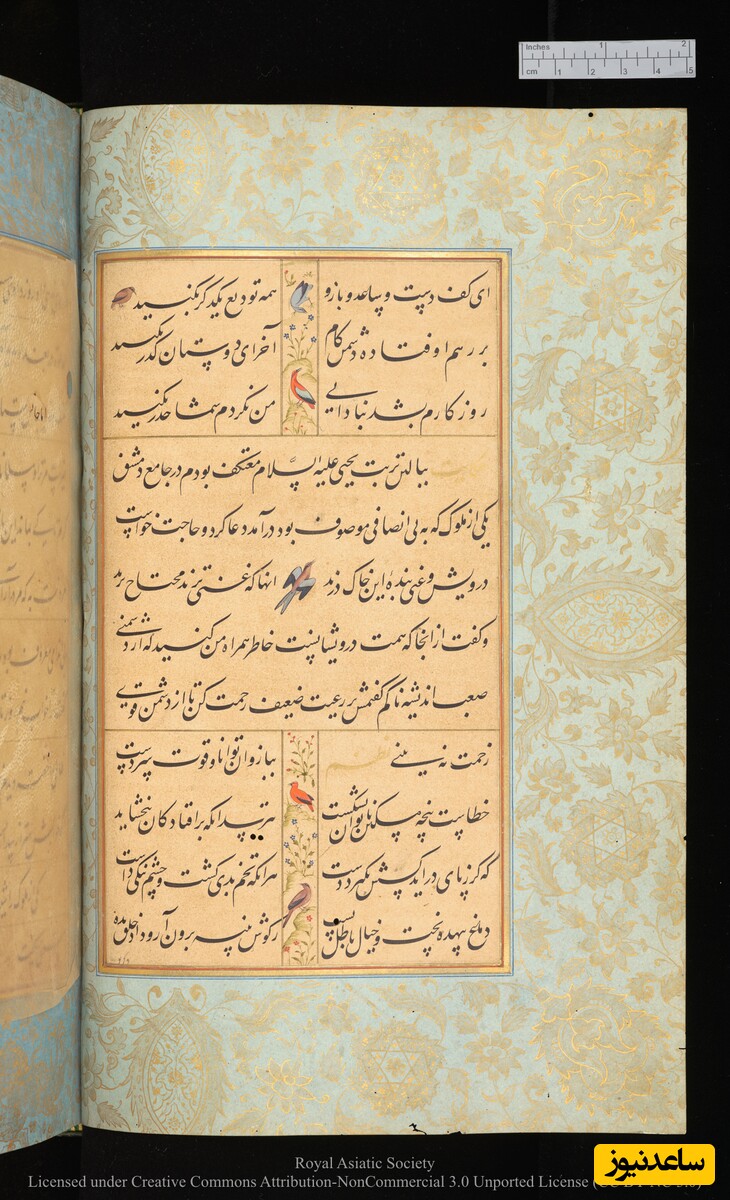 Inches 1 2
cm 1 2 3 4 5
ای کف دست و ساعد و بازو همه تودیع یکدگر بکنید
بر رهم اوفتاده دشمن کام آخر ای دوستان گذر بکنید
روزکارم بشد بنادانی من نکردم شما حذر بکنید
ببالین تربت یحیی علیه السلام معتکف بودم در جامع دمشق
یکی از ملوک که به بی انصافی موصوف بود درآمد دعا کرد و حاجت خواست
درویش و غنی بنده این خاک درند آنها که غنی ترند محتاج ترند
و کفت از آنجا که همت درویشانست خاطر همراه من کنید که از دشمنی
صعب اندیشه ناکم کفتمش بر رعیت ضعیف رحمت کن تا از دشمن قوی
زحمت نه بینی نظم ببازوان توانا و قوت سر دست
خطاست پنجه مسکین ناتوان بشکست نترسد آنکه بر افتادکان نبخشاید
که کر ز پای درآید کسش نکیرد دست هر آنکه تخم بدی کشت و چشم نیکی داشت
دماغ بیهده پخت و خیال باطل بست ز کوش پنبه برون آر و داد خلق بده
ساعدنیوز
Royal Asiatic Society
Licensed under Creative Commons Attribution-NonCommercial 3.0 Unported License